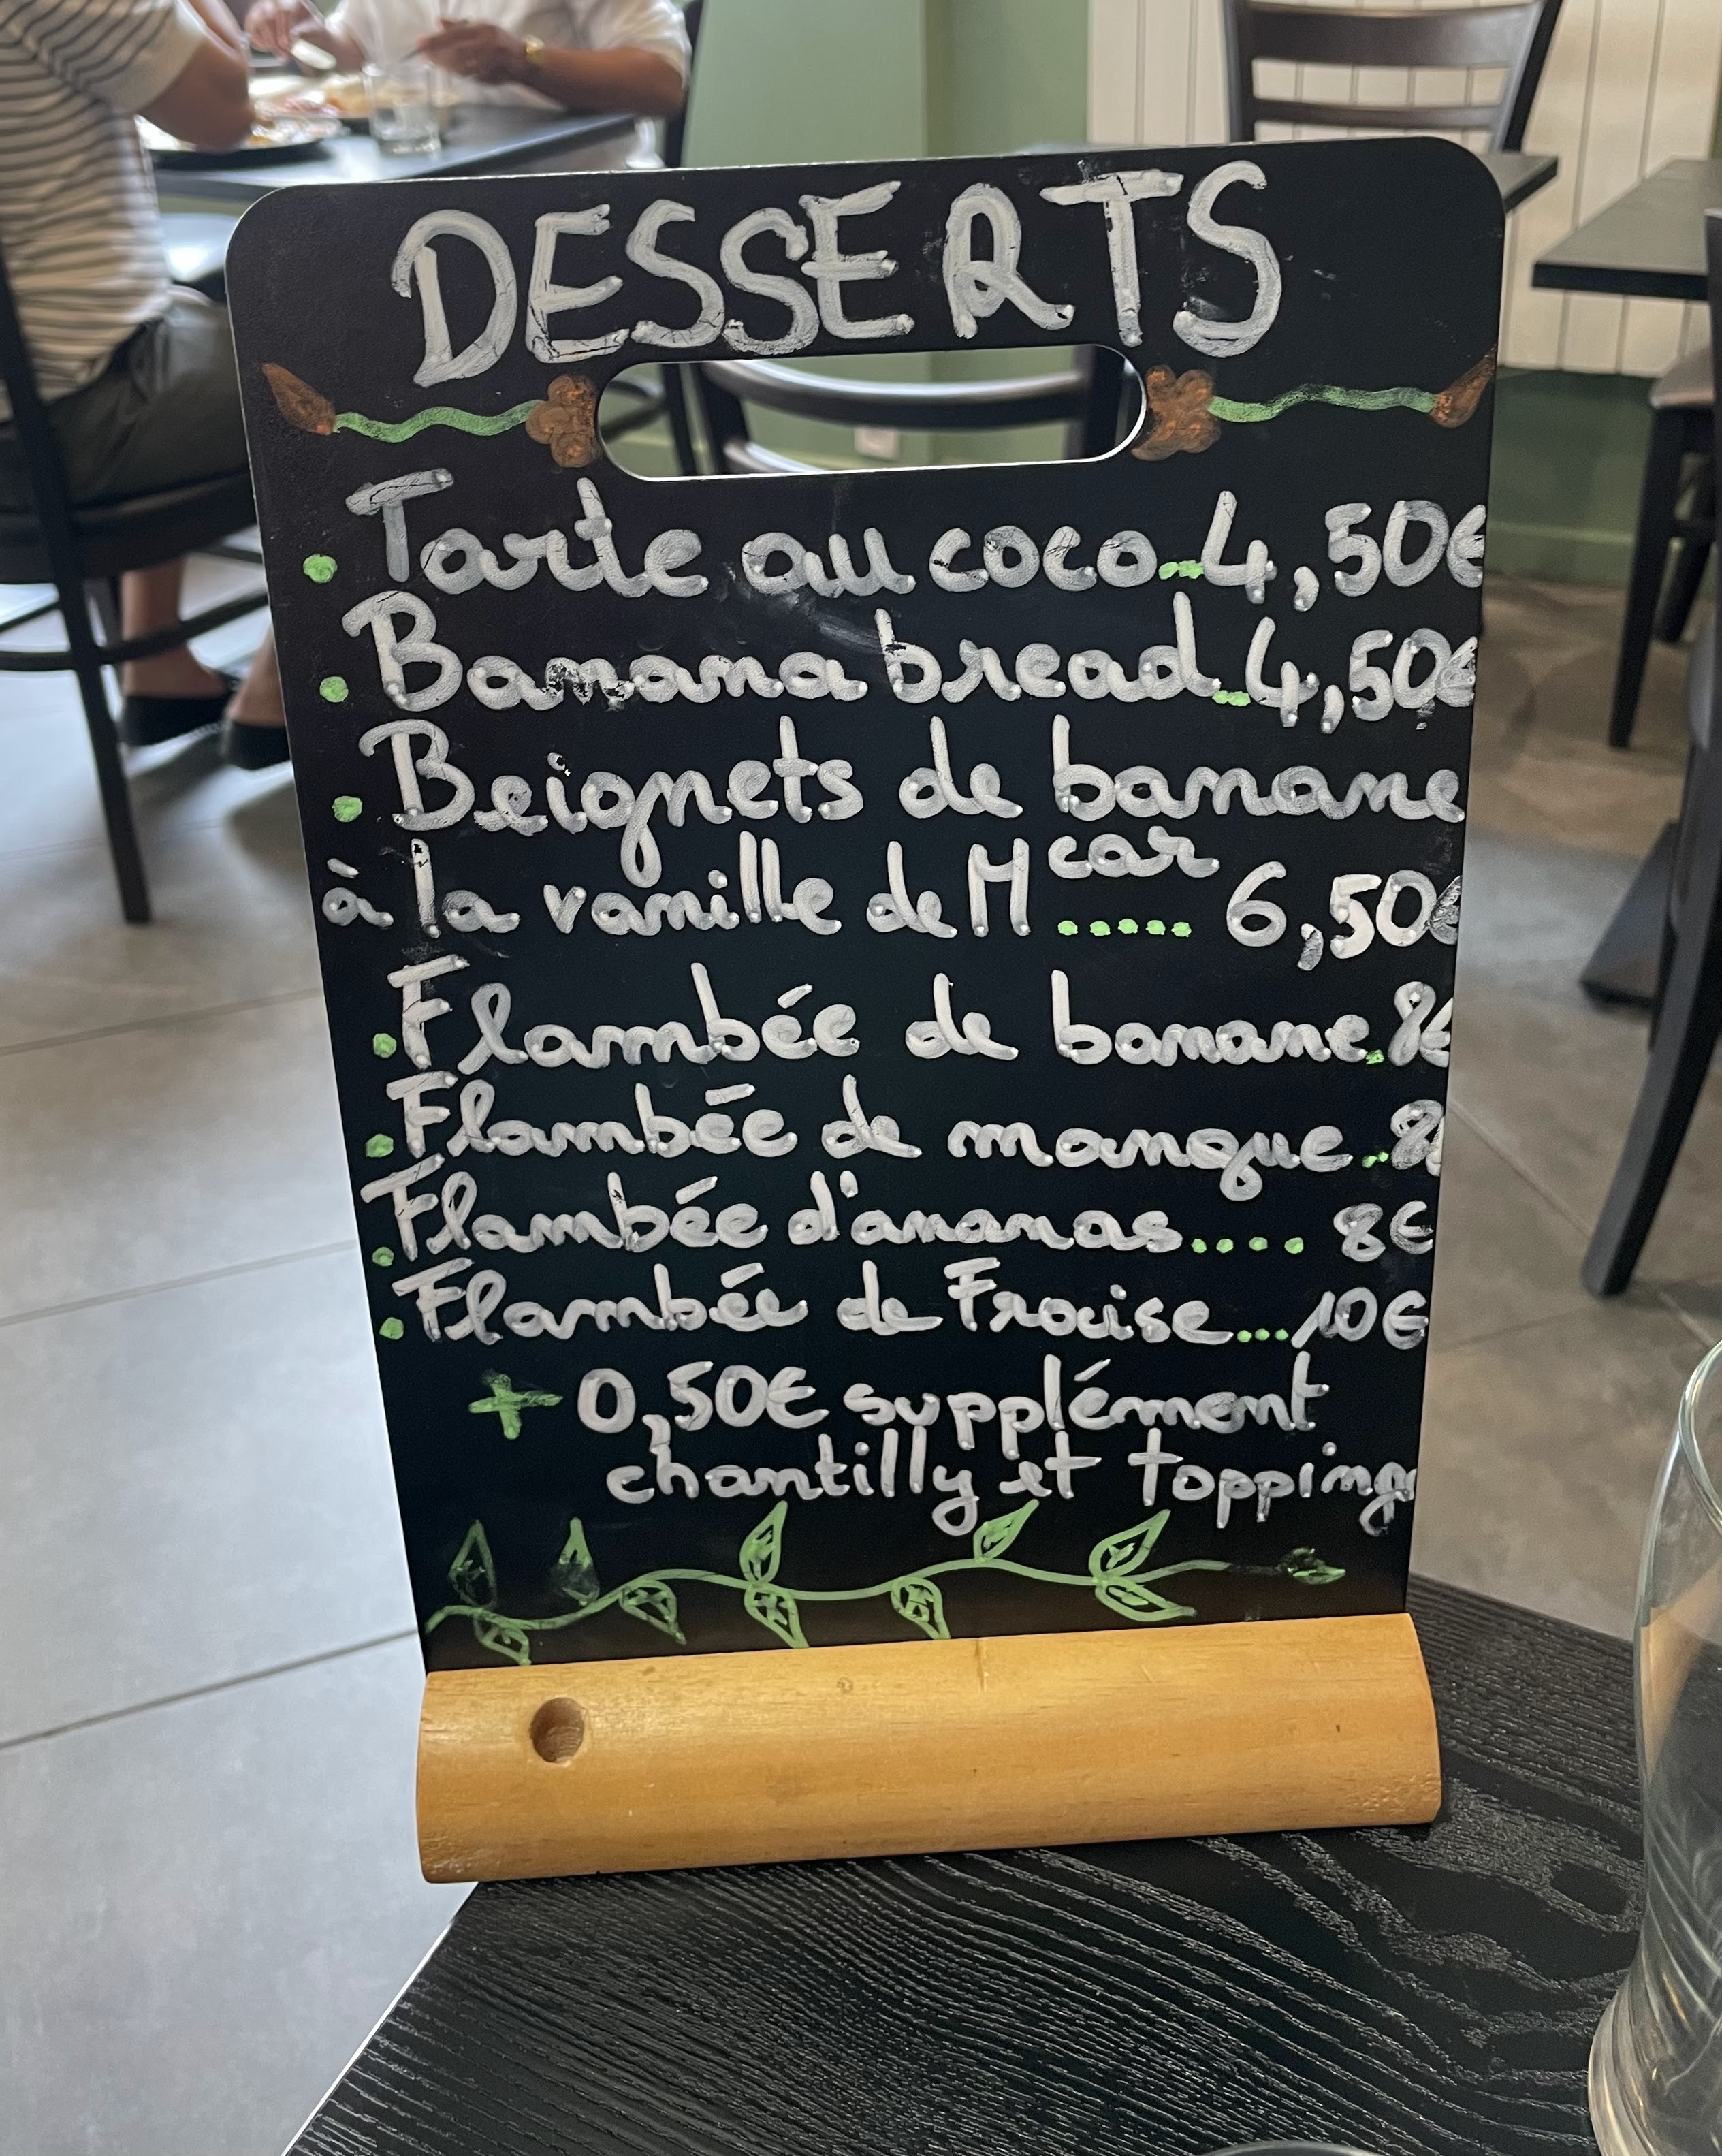 DESSERTS
• Tarte au coco...4,50€
• Banana bread...4,50€
• Beignets de banane
à la vanille de Mcar ..... 6,50€
• Flambée de banane.8€
• Flambée de mangue..8€
• Flambée d'ananas.... 8€
• Flambée de Fraise...10€
+ 0,50€ supplément
chantilly et topping